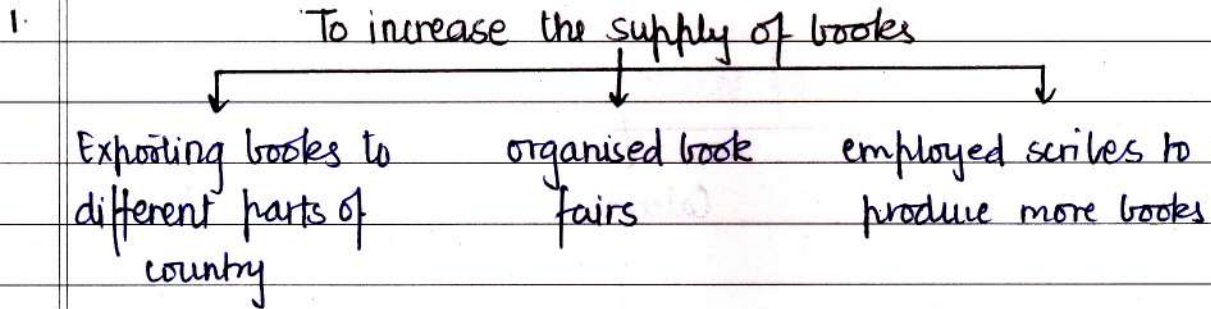 1. To increase the supply of books
Exporting books to
different parts of
country
organised book
fairs
employed scribes to
produce more books